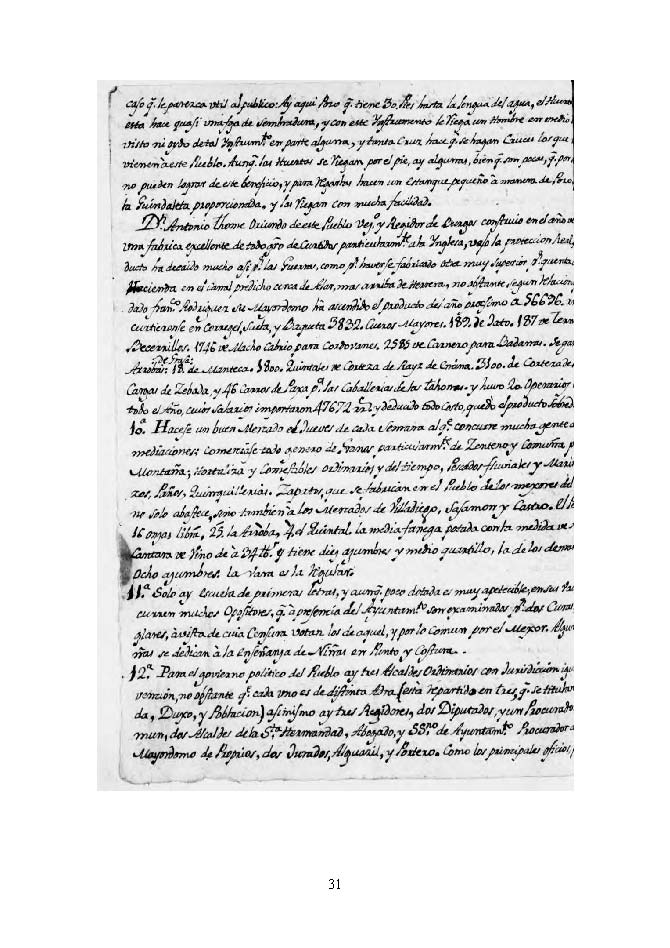 caso q.e le parezca util al publico: Ay aqui Pozo q.e tiene 30. Pies hasta la lengua del agua, el Huerto
esta hace quasi una fga de sembradura, y con este Ynstrumento le riega un Hombre en medio
visto ni oydo de tal Ynstrum.to en parte alguna, y tanta Cruz hace q.e se hagan Cruces los que
vienen à este Pueblo. Aunq.e las Huertas se riegan por el pie, ay algunas, bien q.e son pocas, q.e por
no pueden lograr de este beneficio, y para regarlas hacen un estanque pequeño à manera de Pozo,
la Guindaleta proporcionada, y las riegan con mucha facilidad.
D.n Antonio thome Oriundo de este Pueblo Vez.o y Regidor de Burgos construio en el año de
una fabrica excellente de todo gro de Curtidos particularm.te ala Ynglesa, vajo la proteccion Real,
ducto ha decaido mucho asi p.r las Guerras, como p.r haverse fabricado otra muy superior p.r quenta
Hacienda en el Canal predicho cerca de Alar, mas arriba de Herrera, no obstante segun relacion
dado fran.co Rodriguez su Mayordomo ha ascendido el producto del año proximo a 56696. r
curtieronse en Corregel, Suela, y Baqueta 3832. Cueros Mayores. 189. de Jato. 187 de Tern
Becerrillos. 1746 de Macho Cabrio para Cordovanes. 2585 de Carnero para Badanas. Se gas
de Grasa
Arrobas: 18 de Manteca. 1800. Quintales de Corteza de Rayz de Encina. 3100. de Corteza de
Cargas de Zebada, y 46 Carros de Paxa p.a las Caballerias de las tahonas. y huvo 20 Operarios
todo el Año, cuios Salarios importaron 47672 r.s y deducido todo costo, quedò el producto sobred
10.a Hacese un buen Mercado el Jueves de cada Semana al q.e concurre mucha gente d
mediaciones: comerciase todo genero de granos particularm.te de Zenteno y Comuña p
Montaña; Hortaliza y Comestibles ordinarios y del tiempo, Pescados fluviales y Mari
zos, Paños, Quinquillerias. Zapatos, que se fabrican en el Pueblo de los mejores del
no solo abastece, sino tambien à los Mercados de Villadiego, Sasamon y Castro. El
16 onzas libra, 25. la Arroba, 4. el Quintal. la media fanega potada con la medida de
Cantara de Vino de à 34 lb.s y tiene diez azumbres y medio quartillo, la de los demas
Ocho azumbres. la Vara es la regular.
11.a Solo ay escuela de primeras letras, y aunq.e poco dotada es muy apetecible, en sus Va
curren muchos Opositores, q.e à presencia del Ayuntam.to son examinados p.r dos Curas
glares, à vista de cuia Censura votan los de aquel, y por lo comun por el Mejor. Algun
ñas se dedican à la Enseñanza de Niñas en Punto y Costura.
12.a Para el govierno politico del Pueblo ay tres Alcaldes Ordinarios con Jurisdicion igu
vencion, no obstante q.e cada uno es de distinta Adra (està repartida en tres, q.e se titulan
da, Duxo, y Poblacion) asimismo ay tres Regidores, dos Diputados, y un Procurado
mun, dos Alcaldes de la S.ta Hermandad, Abogado, y SS.no de Ayuntam.to Procurador
Mayordomo de Proprios, dos Jurados, Alguacil, y Portero. Como los principales oficios,
31